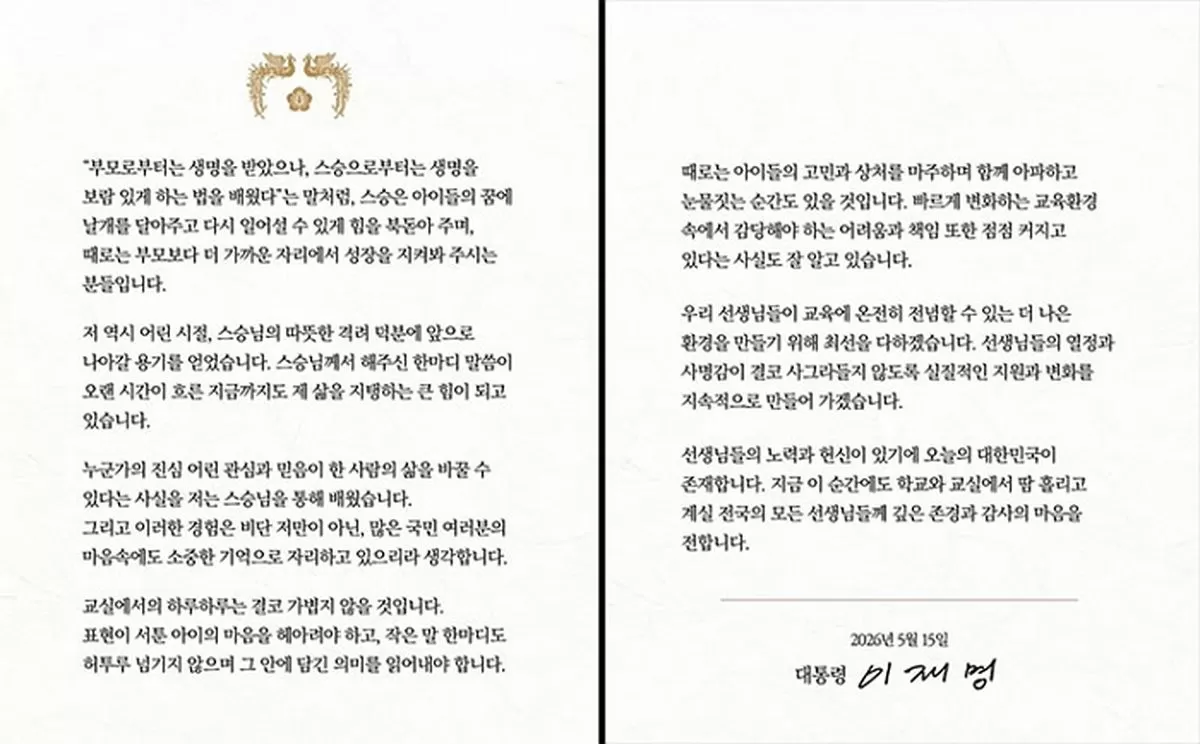 "부모로부터는 생명을 받았으나, 스승으로부터는 생명을
보람 있게 하는 법을 배웠다"는 말처럼, 스승은 아이들의 꿈에
날개를 달아주고 다시 일어설 수 있게 힘을 북돋아 주며,
때로는 부모보다 더 가까운 자리에서 성장을 지켜봐 주시는
분들입니다.
저 역시 어린 시절, 스승님의 따뜻한 격려 덕분에 앞으로
나아갈 용기를 얻었습니다. 스승님께서 해주신 한마디 말씀이
오랜 시간이 흐른 지금까지도 제 삶을 지탱하는 큰 힘이 되고
있습니다.
누군가의 진심 어린 관심과 믿음이 한 사람의 삶을 바꿀 수
있다는 사실을 저는 스승님을 통해 배웠습니다.
그리고 이러한 경험은 비단 저만이 아닌, 많은 국민 여러분의
마음속에도 소중한 기억으로 자리하고 있으리라 생각합니다.
교실에서의 하루하루는 결코 가볍지 않을 것입니다.
표현이 서툰 아이의 마음을 헤아려야 하고, 작은 말 한마디도
허투루 넘기지 않으며 그 안에 담긴 의미를 읽어내야 합니다.
때로는 아이들의 고민과 상처를 마주하며 함께 아파하고
눈물짓는 순간도 있을 것입니다. 빠르게 변화하는 교육환경
속에서 감당해야 하는 어려움과 책임 또한 점점 커지고
있다는 사실도 잘 알고 있습니다.
우리 선생님들이 교육에 온전히 전념할 수 있는 더 나은
환경을 만들기 위해 최선을 다하겠습니다. 선생님들의 열정과
사명감이 결코 사그라들지 않도록 실질적인 지원과 변화를
지속적으로 만들어 가겠습니다.
선생님들의 노력과 헌신이 있기에 오늘의 대한민국이
존재합니다. 지금 이 순간에도 학교와 교실에서 땀 흘리고
계실 전국의 모든 선생님들께 깊은 존경과 감사의 마음을
전합니다.
2026년 5월 15일
대통령 이재명